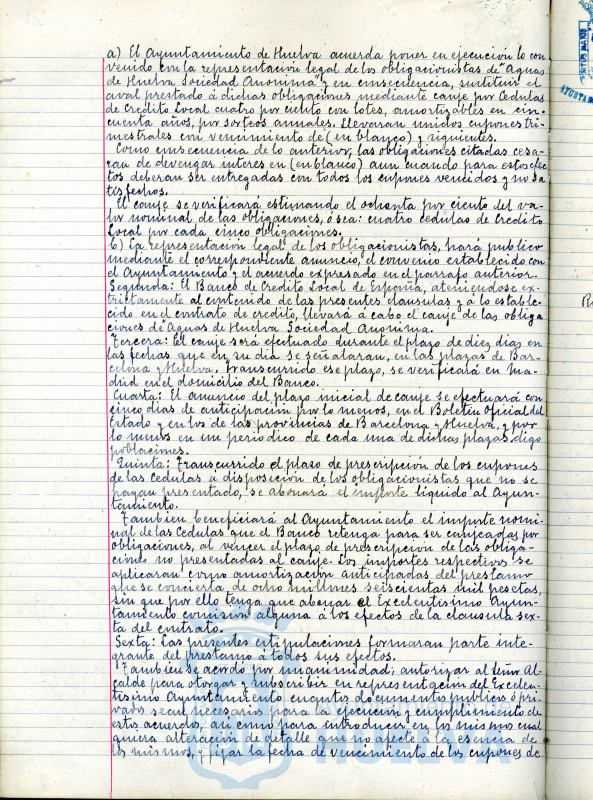 a) El Ayuntamiento de Huelva acuerda poner en ejecución lo con
venido con la representación legal de los obligacionistas de "Aguas
de Huelva Sociedad Anonima" y en consecuencia, sustituir el
aval prestado á dichas obligaciones mediante canje por Cédulas
de Credito Local cuatro por ciento con lotes, amortizables en cin-
cuenta años, por sorteos anuales. Llevaran unidos cupones tri-
mestrales con vencimiento de (en blanco) y siguientes.
Como consecuencia de lo anterior, las obligaciones citadas cesa-
ran de devengar interes en (en blanco) aun cuando para estos efec
tos deberan ser entregadas con todos los cupones vencidos y no sa
tisfechos.
El canje se verificará estimando el ochenta por ciento del va-
lor nominal de las obligaciones, ó sea: cuatro cedulas de Credito
Local por cada cinco obligaciones.
b) La representación legal de los obligacionistas, hará publico
mediante el correspondiente anuncio, el convenio establecido con
el Ayuntamiento y el acuerdo expresado en el parrafo anterior.
Segunda: El Banco de Credito Local de España, ateniendose ex-
trictamente al contenido de las presentes clausulas y á lo estable-
cido en el contrato de credito, llevará á cabo el canje de las obliga
ciones de "Aguas de Huelva Sociedad Anonima.
Tercera: El canje será efectuado durante el plazo de diez dias en
las fechas que en su dia se señalaran, en las plazas de Bar-
celona y Huelva. Transcurrido ese plazo, se verificará en Ma-
drid en el domicilio del Banco.
Cuarta: El anuncio del plazo inicial de canje se efectuará con
cinco dias de anticipación por lo menos, en el Boletin Oficial del
Estado y en los de las provincias de Barcelona y Huelva, y por
lo menos en un periodico de cada una de dichas plazas, digo
poblaciones.
Quinta: Transcurrido el plazo de prescripción de los cupones
de las Cedulas a disposición de los obligacionistas que no se
hayan presentado, se abonará el importe líquido al Ayun-
tamiento.
Tambien beneficiará al Ayuntamiento el importe nomi
nal de las Cedulas que el Banco retenga para ser canjeadas por
obligaciones, al vencer el plazo de prescripcion de las obliga-
ciones no presentadas al canje. Los importes respectivos se
aplicaran como amortización anticipadas del prestamo
que se concierta de ocho millones seiscientas mil pesetas,
sin que por ello tenga que abonar el Excelentisimo Ayun-
tamiento comisión alguna á los efectos de la clausula sex-
ta del contrato.
Sexta: Las presentes estipulaciones formaran parte inte-
grante del prestamo á todos sus efectos.
Tambien se acordo por unanimidad, autorizar al Señor Al-
calde para otorgar y subscribir en representación del Excelen-
tisimo Ayuntamiento cuantos documentos publicos ó pri-
vados sean necesarios para la ejecución y cumplimiento de
estos acuerdos, asi como para introducir en los mismos cual
quiera alteración de detalle que no afecte á la esencia de
los mismos, y fijar la fecha de vencimiento de los cupones de